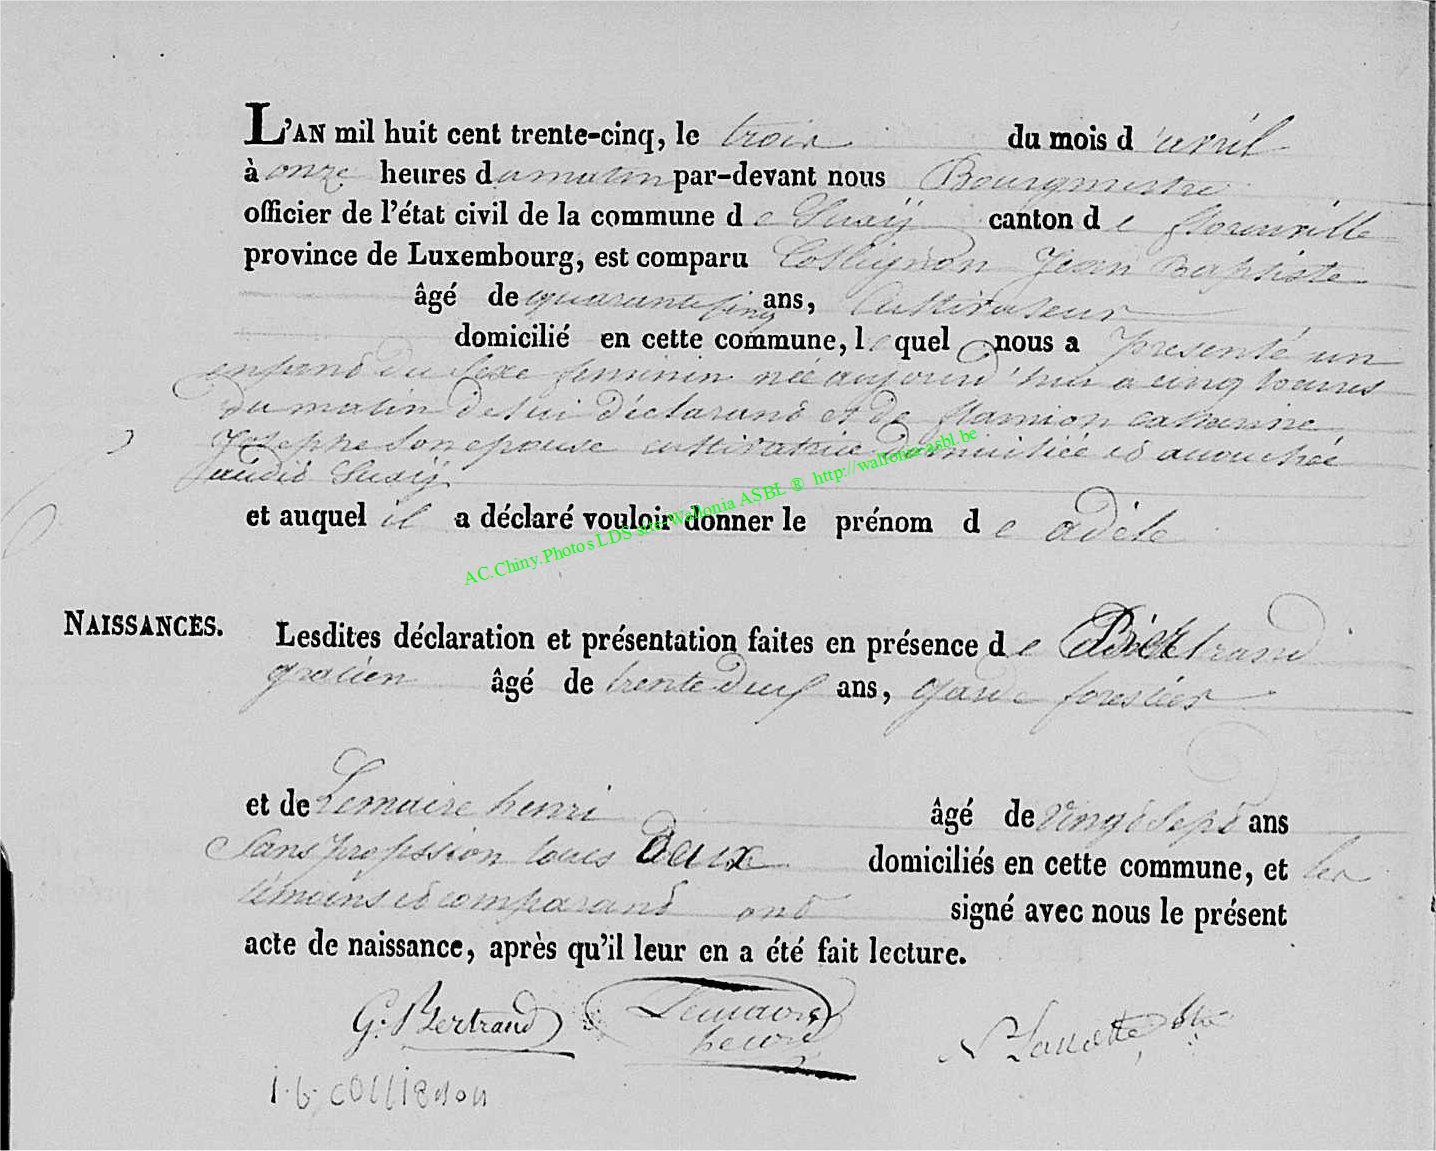 L'AN mil huit cent trente-cinq, le trois du mois d'avril
à onze heures du matin par-devant nous Bourgmestre
officier de l'état civil de la commune de Suxÿ canton de florenville
province de Luxembourg, est comparu Collignon Jean Baptiste
âgé de quarante cinq ans, Cultivateur
domicilié en cette commune, lequel nous a présenté un
enfand du sexe feminin née aujourd'hui a cinq heures
du matin de lui déclarand et de flamion catherine
Josephe son epouse cultivatrice domiciliée et acouchée
audit Suxÿ
et auquel il a déclaré vouloir donner le prénom de adèle
AC.Chiny.Photos LDS s/c Wallonia ASBL ® http://wallonia-asbl.be
NAISSANCES.
Lesdites déclaration et présentation faites en présence de Bertrand
gratien âgé de trente deuf ans, garde forestier
et de Lemaire henri âgé de vingt sept ans
Sans profession tous Deux domiciliés en cette commune, et les
témoins et comparand ond signé avec nous le présent
acte de naissance, après qu'il leur en a été fait lecture.
G. Bertrand Lemaire
henri
j. b. collignon